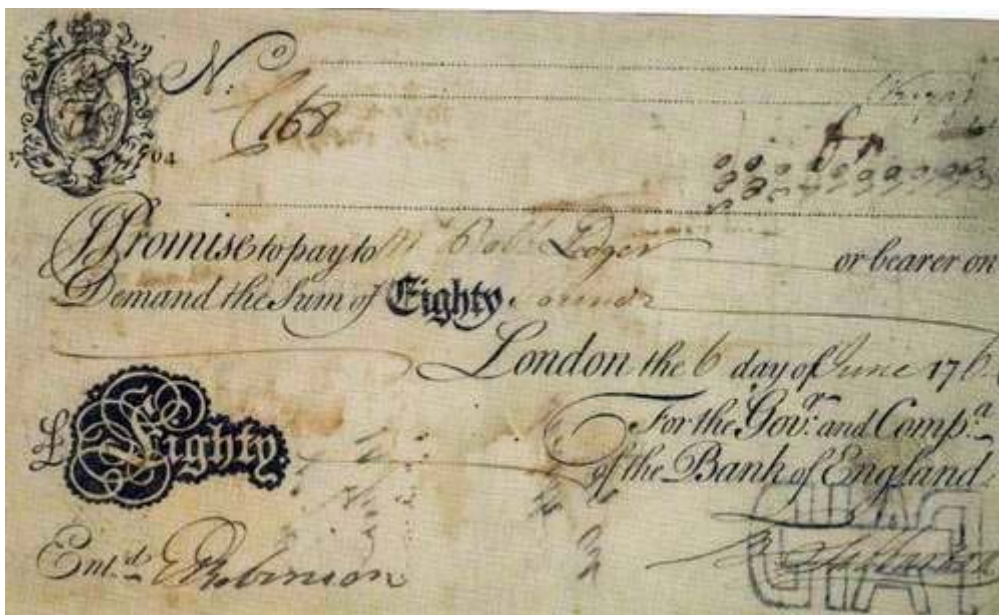 N.º
168
Promise to pay to M Ledger or bearer on
Demand the Sum of Eighty Pounds
London the 6 day of June 176
For the Govr. and Compa.
of the Bank of England
£ Eighty
Entd. Robinson